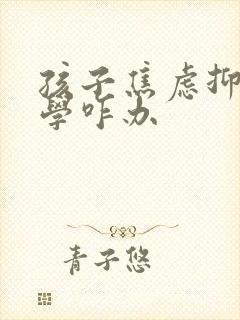 孩子焦虑抑
學咋办
青子悠